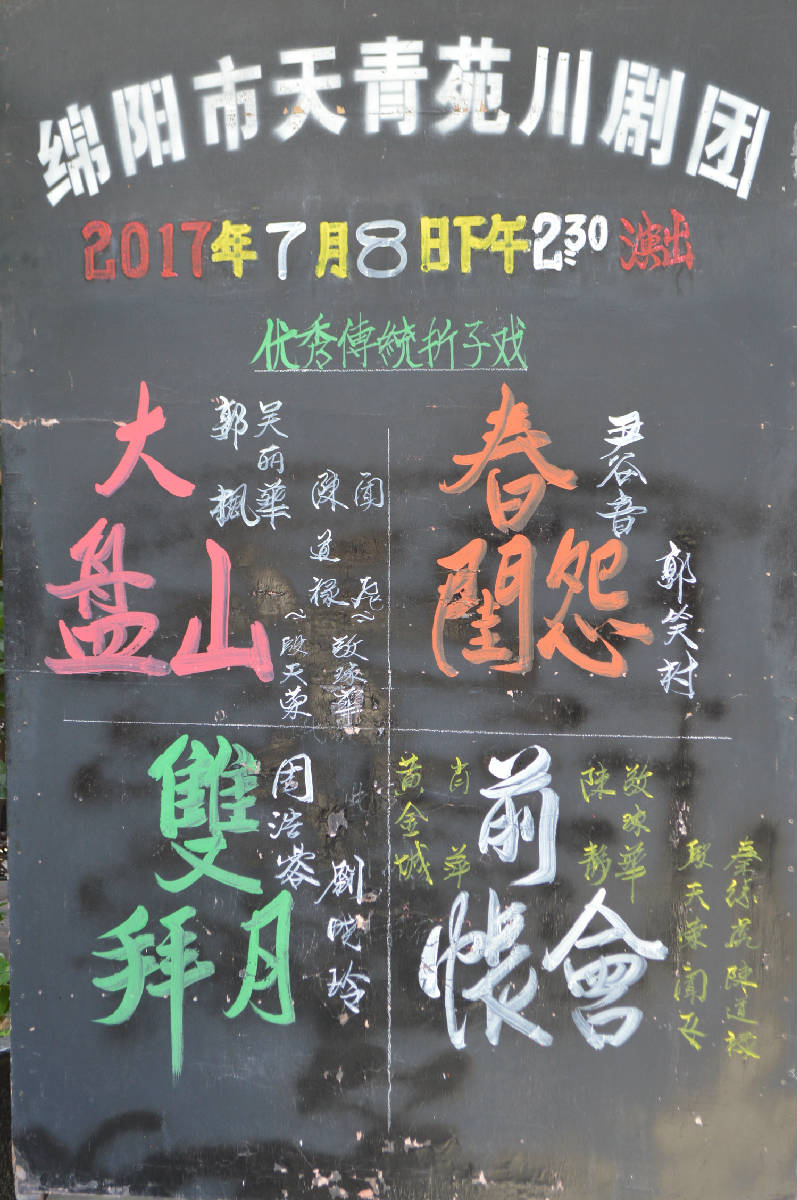 绵阳市天青苑川剧团
2017年7月8日下午2:30演出
优秀傳統折子戏
大盘山
郭枫
吴丽華
陳道禄~段天荣
闻飞~敬琼華
春閨怨
丑谷音
郭笑村
雙拜月
周浩蓉
刷晓玲
前帳會
黄金城
肖萍
陳静
敬琼華
段天荣 闻飞
陳道禄